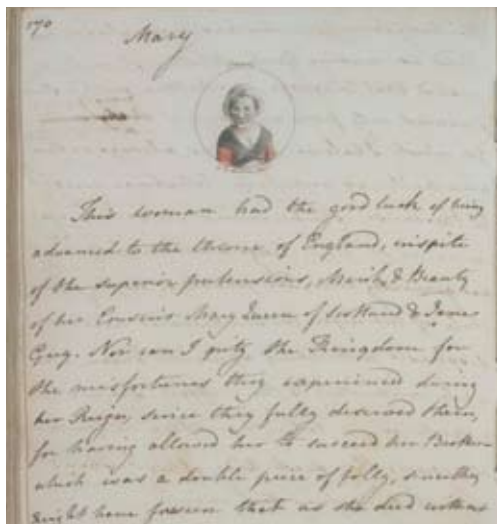 170
Mary
This woman had the good luck of being
advanced to the throne of England, inspite
of the superior pretensions, Merit, & Beauty
of her Cousins Mary Queen of Scotland & Jane
Grey. Nor can I pity the Kingdom for
the misfortunes they experienced during
her Reign, since they fully deserved them,
for having allowed her to succeed her Brother—
which was a double peice of folly, since they
might have foreseen that as she died without